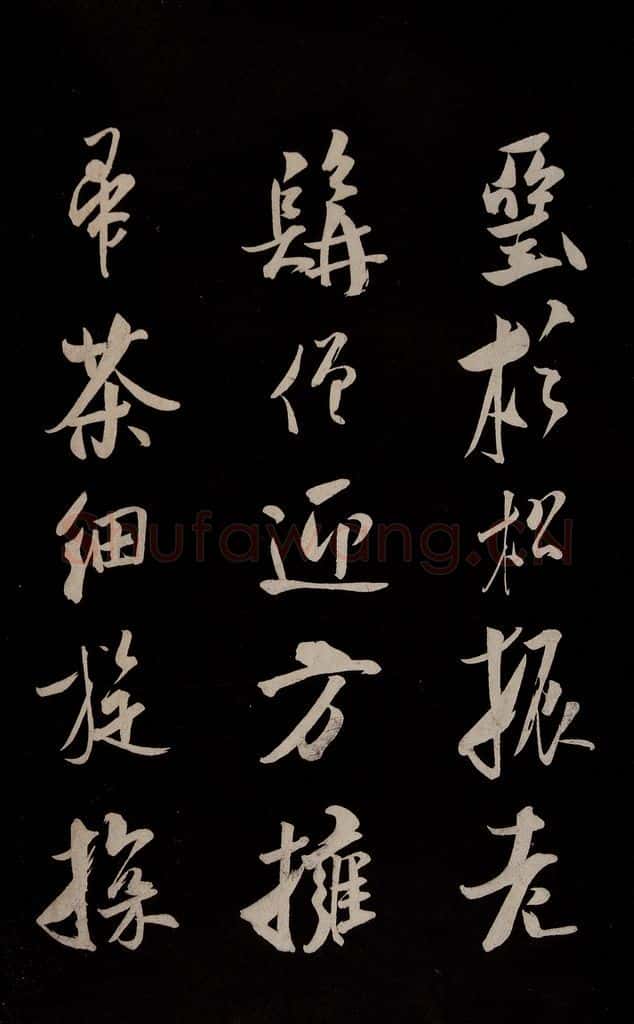 堊杉松振老
髯僧迎方擁
帚茶細旋探
shufawang.cn